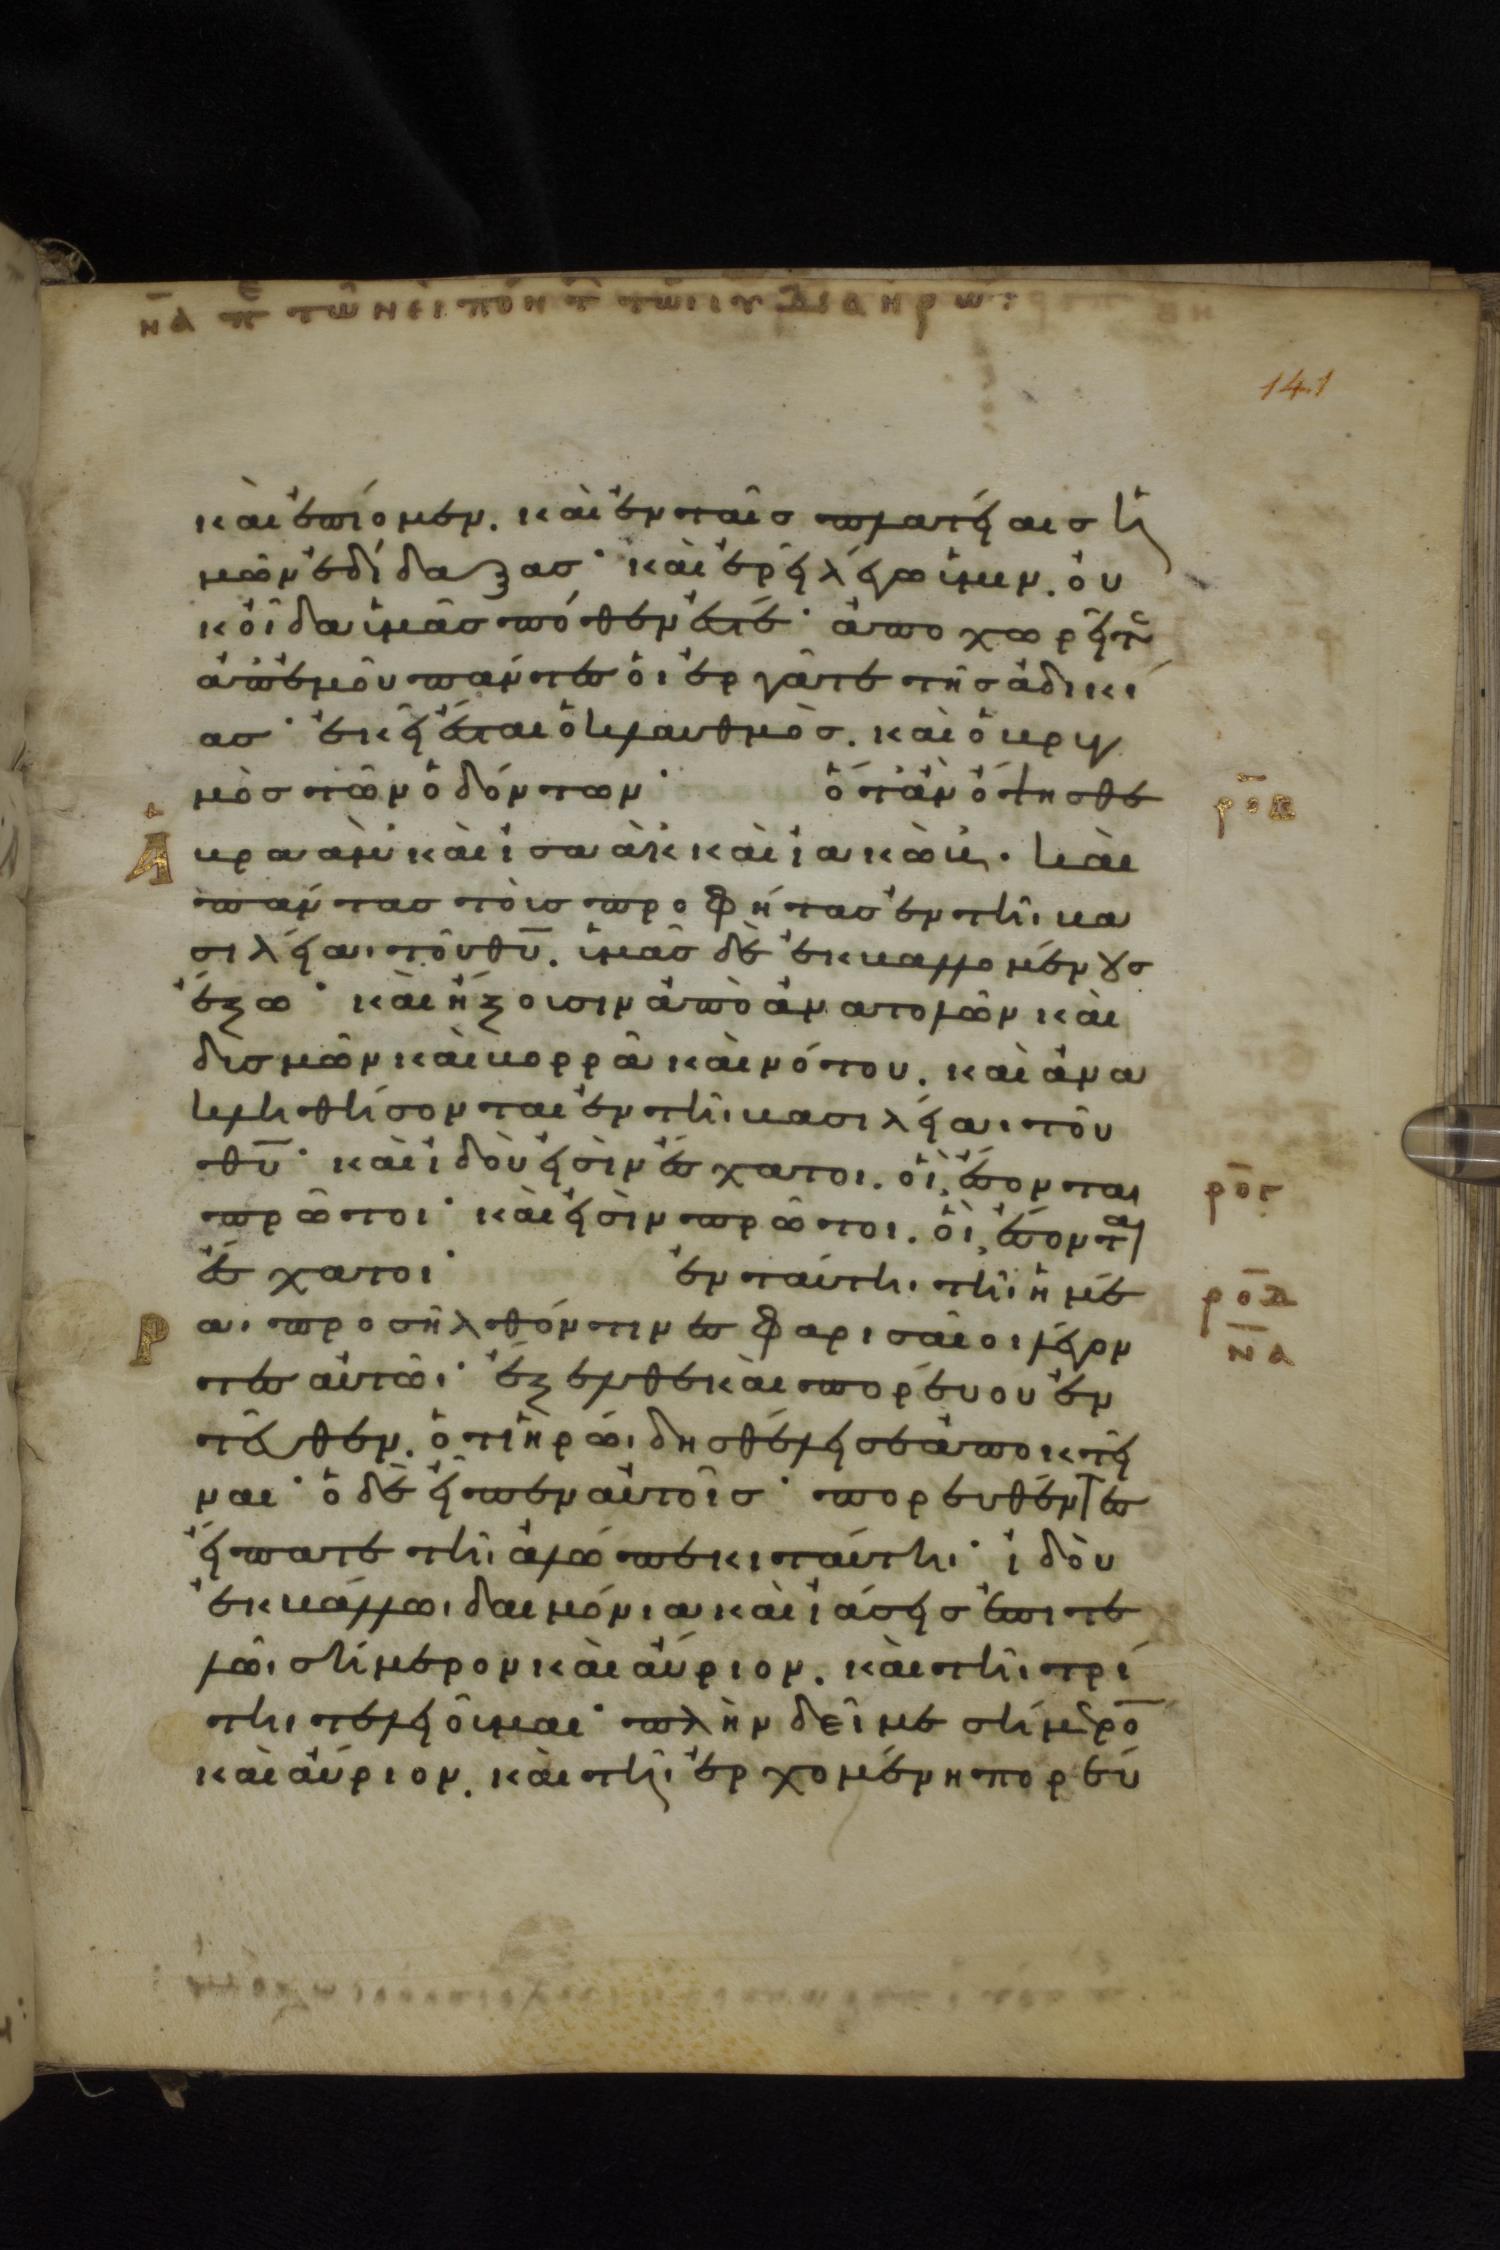 ν̅α̅ π̅ε̅ τῶν εἰπόντ τῶι ι̅υ̅ διὰ ἡρώ:
141
καὶ ἐπίομεν. καὶ ἐν ταῖς πλατείαις ἡ
μῶν ἐδίδαξας· καὶ ἐρεῖ λέγω ὑμιν. οὐ
κ οἶδα ὑμᾶς πόθεν ἐστέ· ἀποχωρεῖτε
ἀπ' ἐμοῦ πάντες οἱ ἐργάται τῆς ἀδικί
ας· ἐκεῖ ἔσται ὁ κλαυθμὸς. καὶ ὁ βρυγ
μὸς τῶν ὀδόντων· ὅταν ὄψησθε ρ̅ο̅β̅
Α βραὰμ καὶ ἰσαὰκ καὶ ἰακὼβ. καὶ
πάντας τοὺς προφήτας ἐν τῆι βα
σιλείαι τοῦ θ̅υ̅. ὑμᾶς δὲ ἐκβαλλομένους
ἔξω· καὶ ἥξουσιν ἀπὸ ἀνατολῶν καὶ
δυσμῶν καὶ βορρᾶ καὶ νότου. καὶ ἀνα
κληθήσονται ἐν τῆι βασιλείαι τοῦ
θ̅υ̅· καὶ ἰδοὺ εἰσὶν ἔσχατοι. οἳ ἔσονται ρ̅ο̅γ̅
πρῶτοι· καὶ εἰσὶν πρῶτοι. οἳ ἔσονται
ἔσχατοι· ἐν ταύτηι τῆι ἡμέ ρ̅ο̅δ̅
ρ αι προσῆλθόν τινες φαρισαῖοι λέγον ν̅α̅
τες αὐτῶι· ἔξελθε καὶ πορεύου ἐν
τεῦθεν. ὅτι ἡρώιδης θέλει σε ἀποκτεῖ
ναι· ὁ δὲ εἶπεν αὐτοῖς· πορευθέντες
εἴπατε τῆι ἀλώπεκι ταύτηι· ἰδοὺ
ἐκβάλλωι δαιμόνια καὶ ἰάσεις ἐπιτε
λῶι σήμερον καὶ αὔριον. καὶ τῆι τρί
τηι τελειοῦμαι· πλὴν δεῖ με σήμερο̅
καὶ αὔριον. καὶ τῆι ἐρχομένη πορεύ